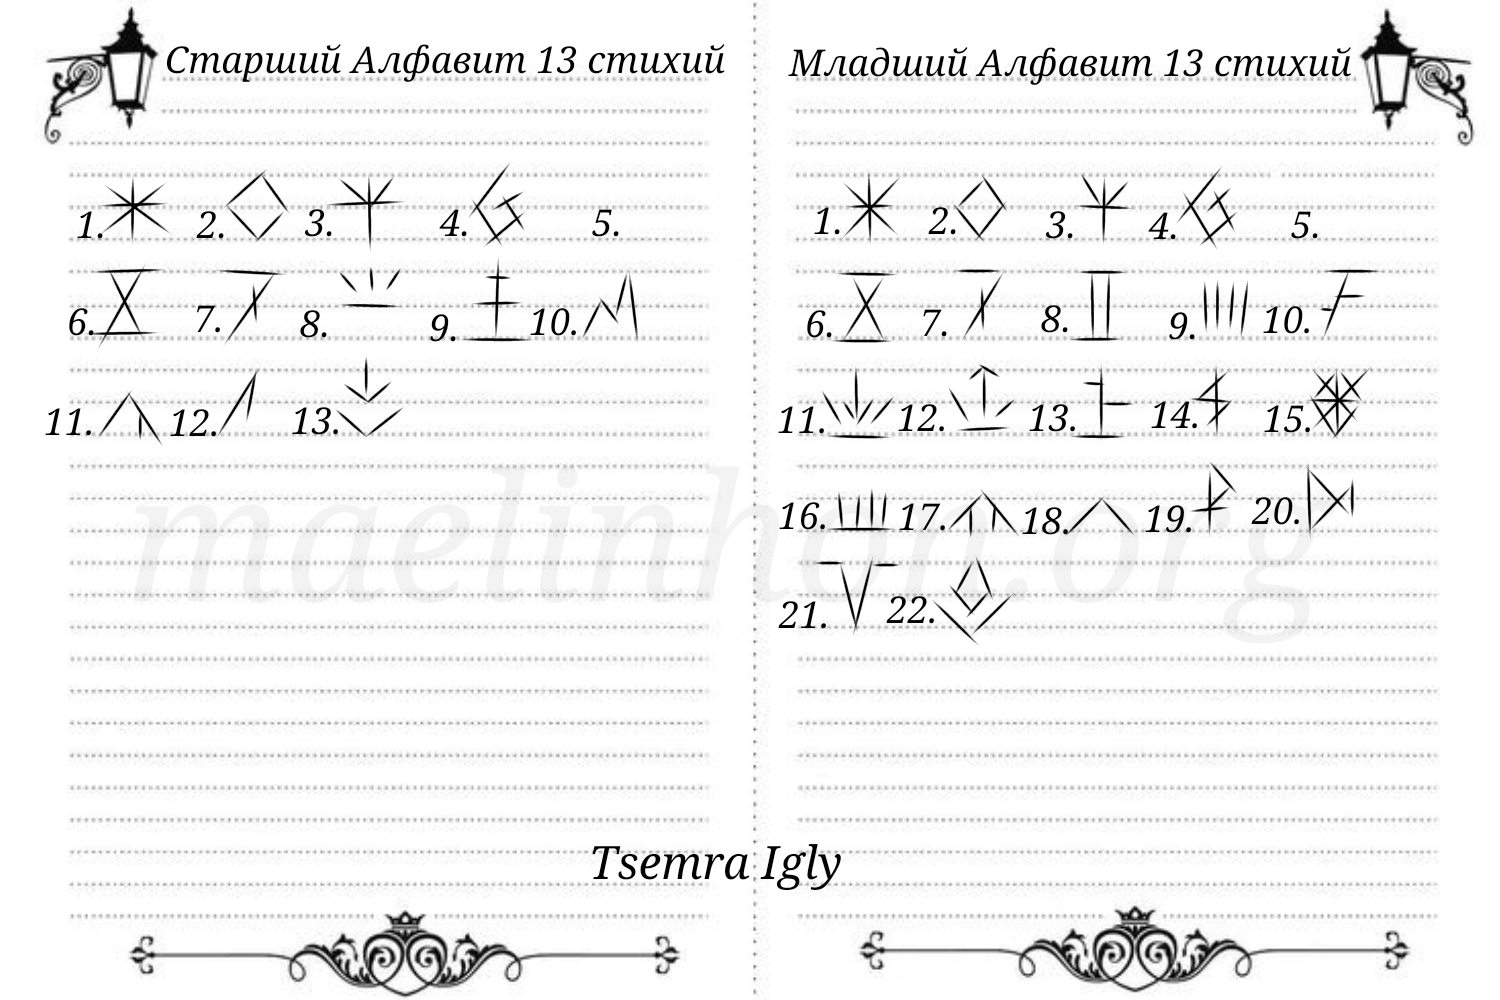 Старший Алфавит 13 стихий
1. 2. 3. 4. 5.
6. 7. 8. 9. 10.
11. 12. 13.
Младший Алфавит 13 стихий
1. 2. 3. 4. 5.
6. 7. 8. 9. 10.
11. 12. 13. 14. 15.
16. 17. 18. 19. 20.
21. 22.
maelinhon.org
Tsemra Igly